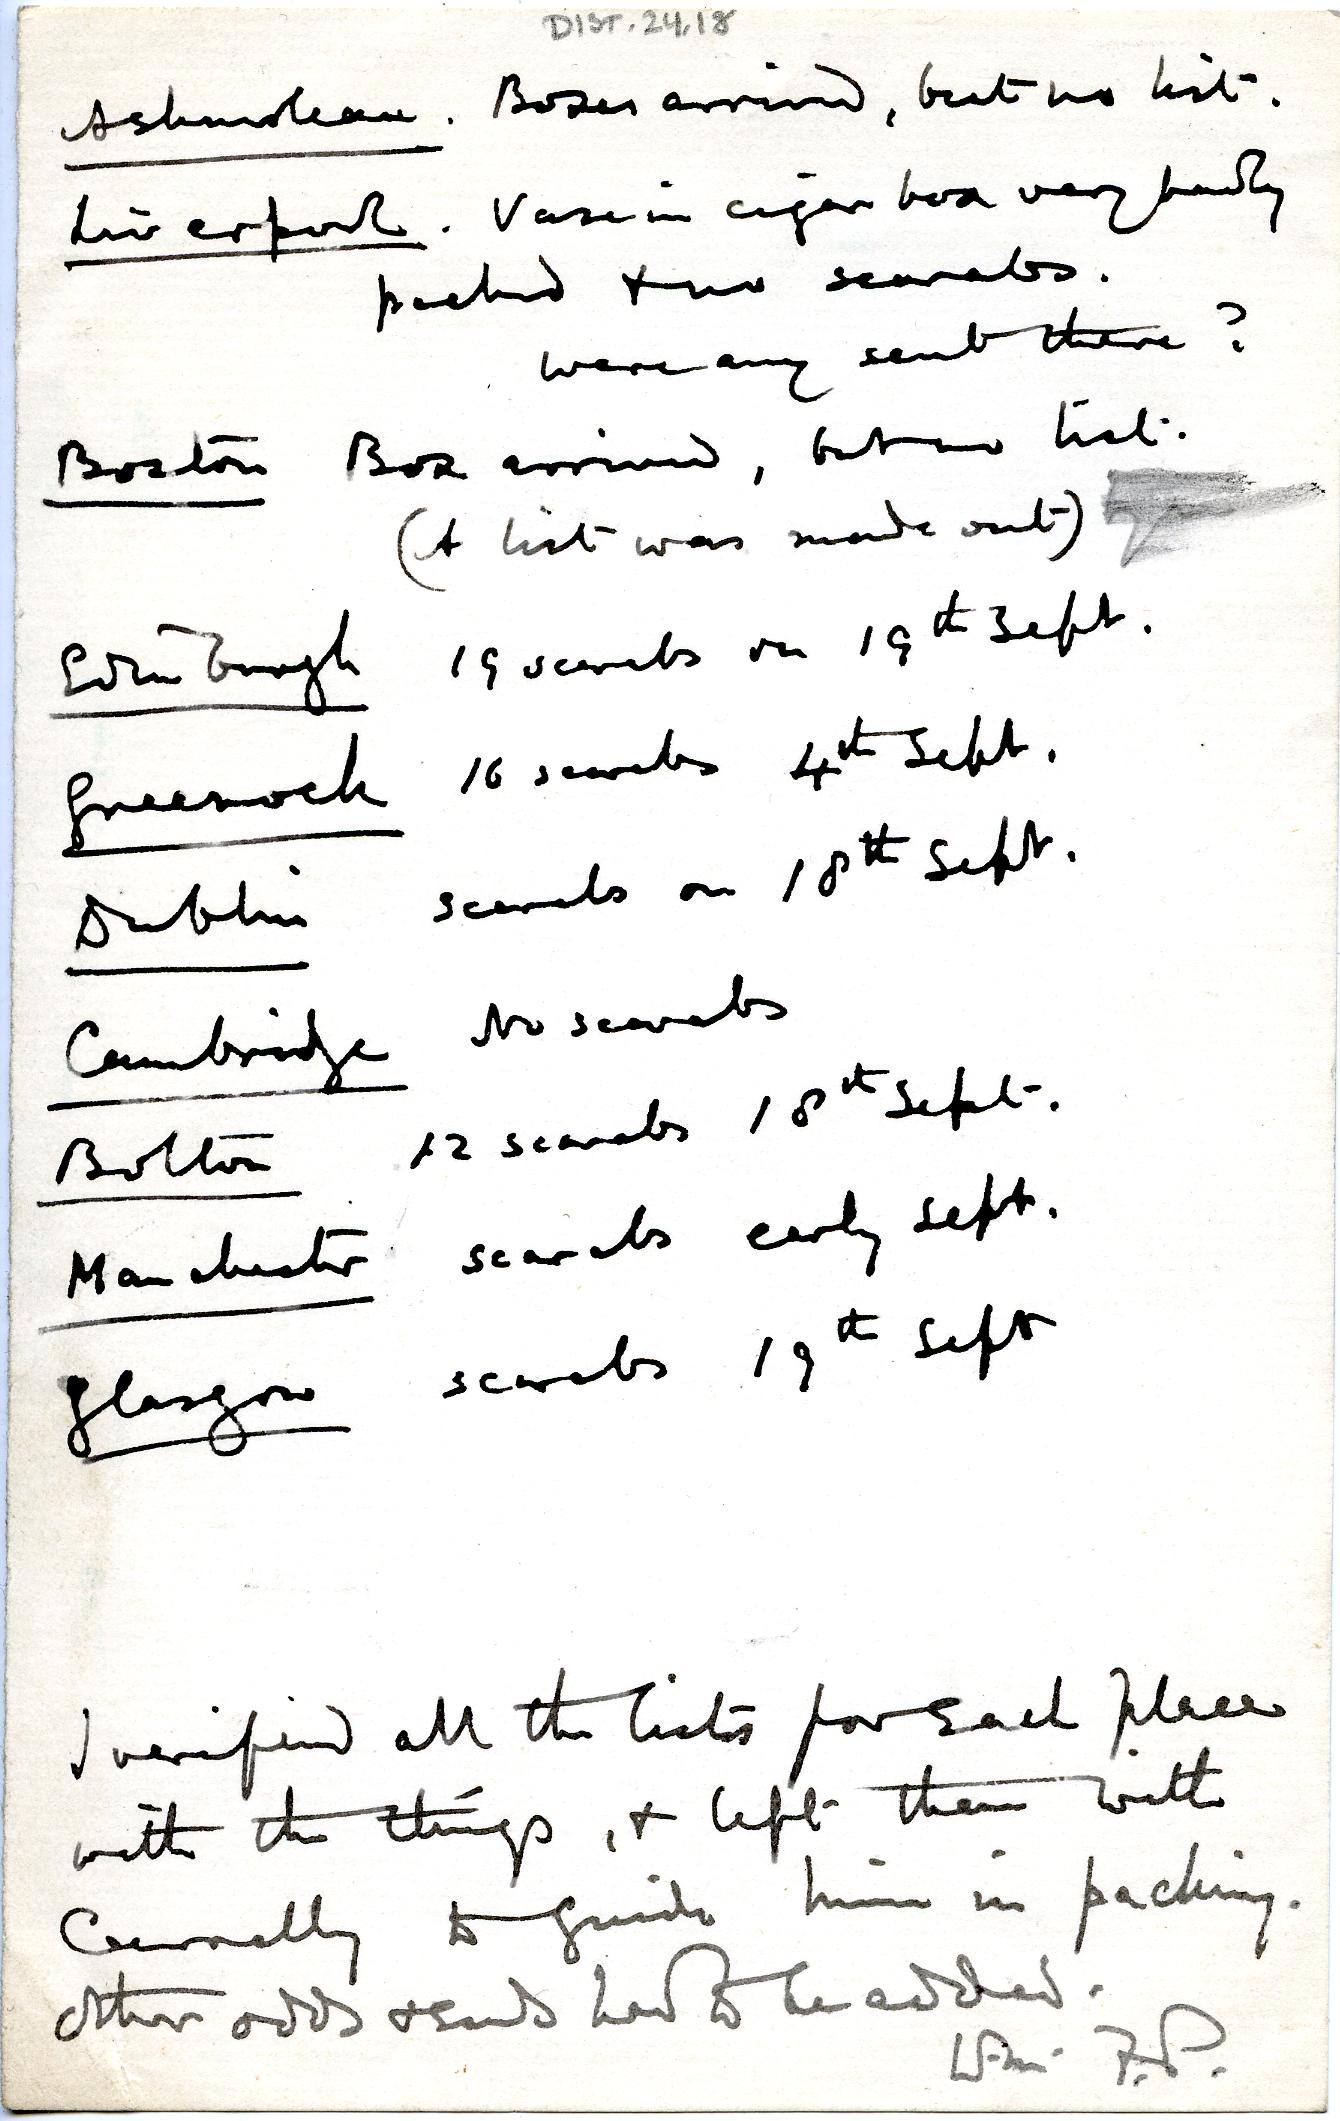 DIST.24.18
Ashmolean. Boxes arrived, but no list.
Liverpool. Vase in cigar box very badly
packed & no scarabs.
were any sent there?
Boston Box arrived, but no list.
(A list was made out)
Edinburgh 19 scarabs on 19th Sept.
Greenock 16 scarabs 4th Sept.
Dublin scarabs on 18th Sept.
Cambridge No scarabs
Bolton 12 scarabs 18th Sept.
Manchester scarabs early Sept.
Glasgow scarabs 19th Sept
I verified all the lists for each place
with the things, & left them with
to guide him in packing.
Other odds & ends had to be added.
F.P.